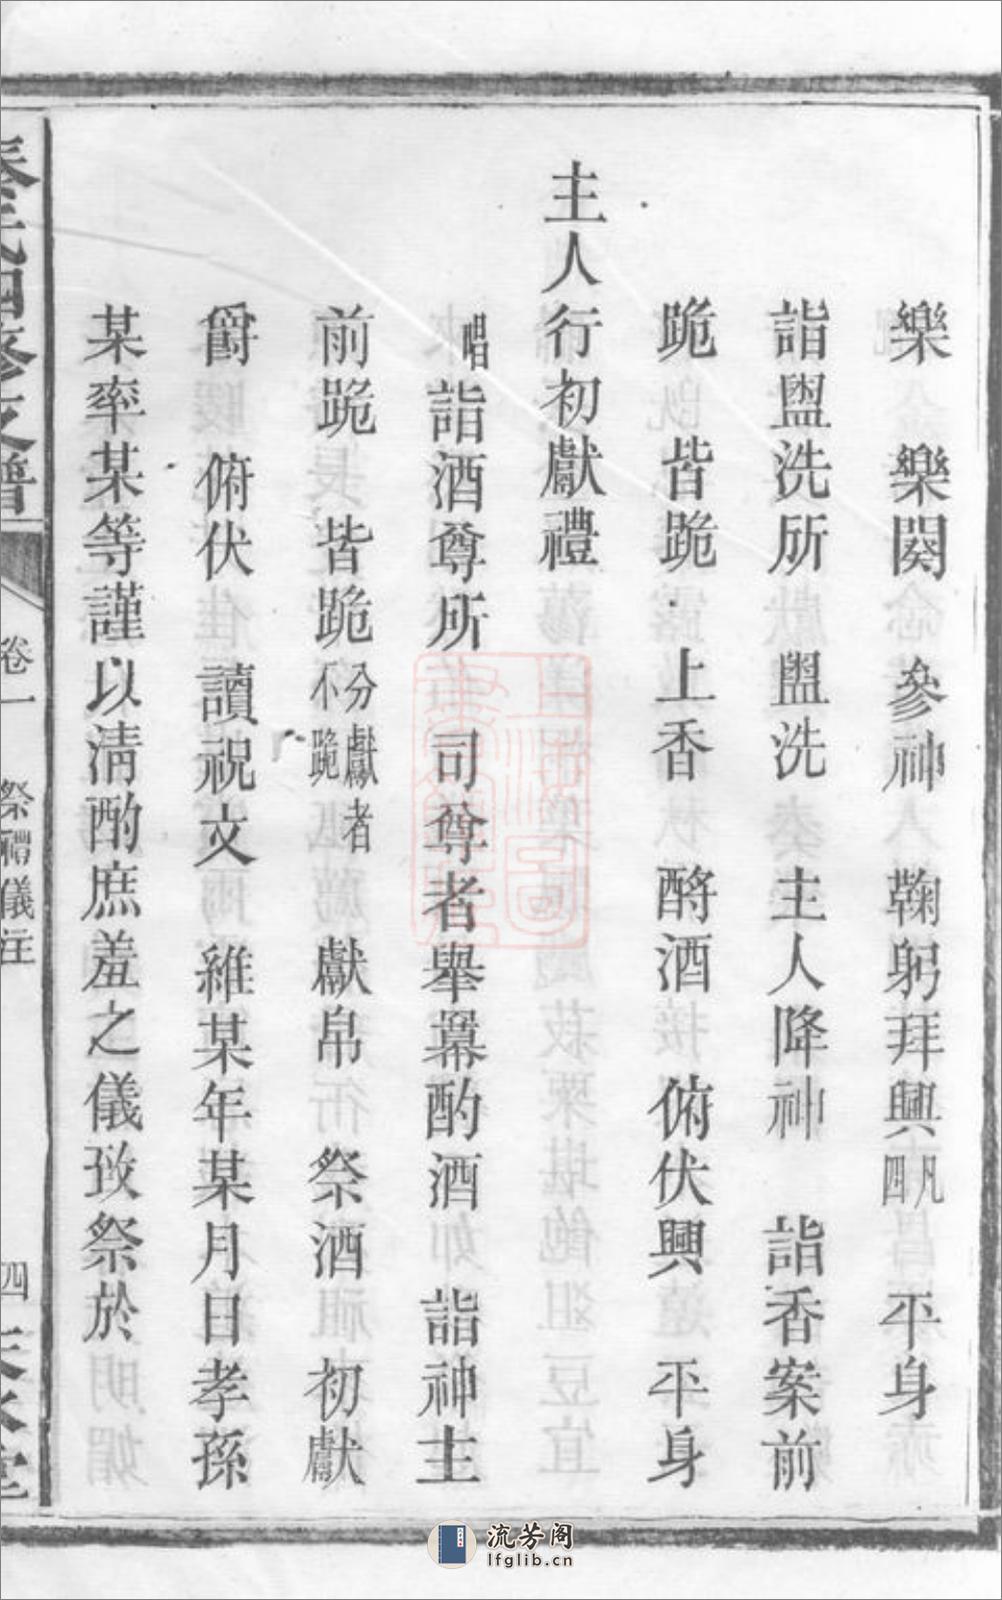 樂　樂闋　參神　鞠躬拜興凡四　平身
詣盥洗所　盥洗　主人降神　詣香案前
跪　皆跪　上香　酹酒　俯伏興　平身
主人行初獻禮
唱詣酒尊所　司尊者舉冪酌酒　詣神主
前跪　皆跪分獻者不跪　獻帛　祭酒　初獻
爵　俯伏　讀祝文　維某年某月日孝孫
某率某等謹以清酌庶羞之儀致祭於
氏四修支譜
卷一　祭禮儀注
四
流芳阁
lfglib.cn